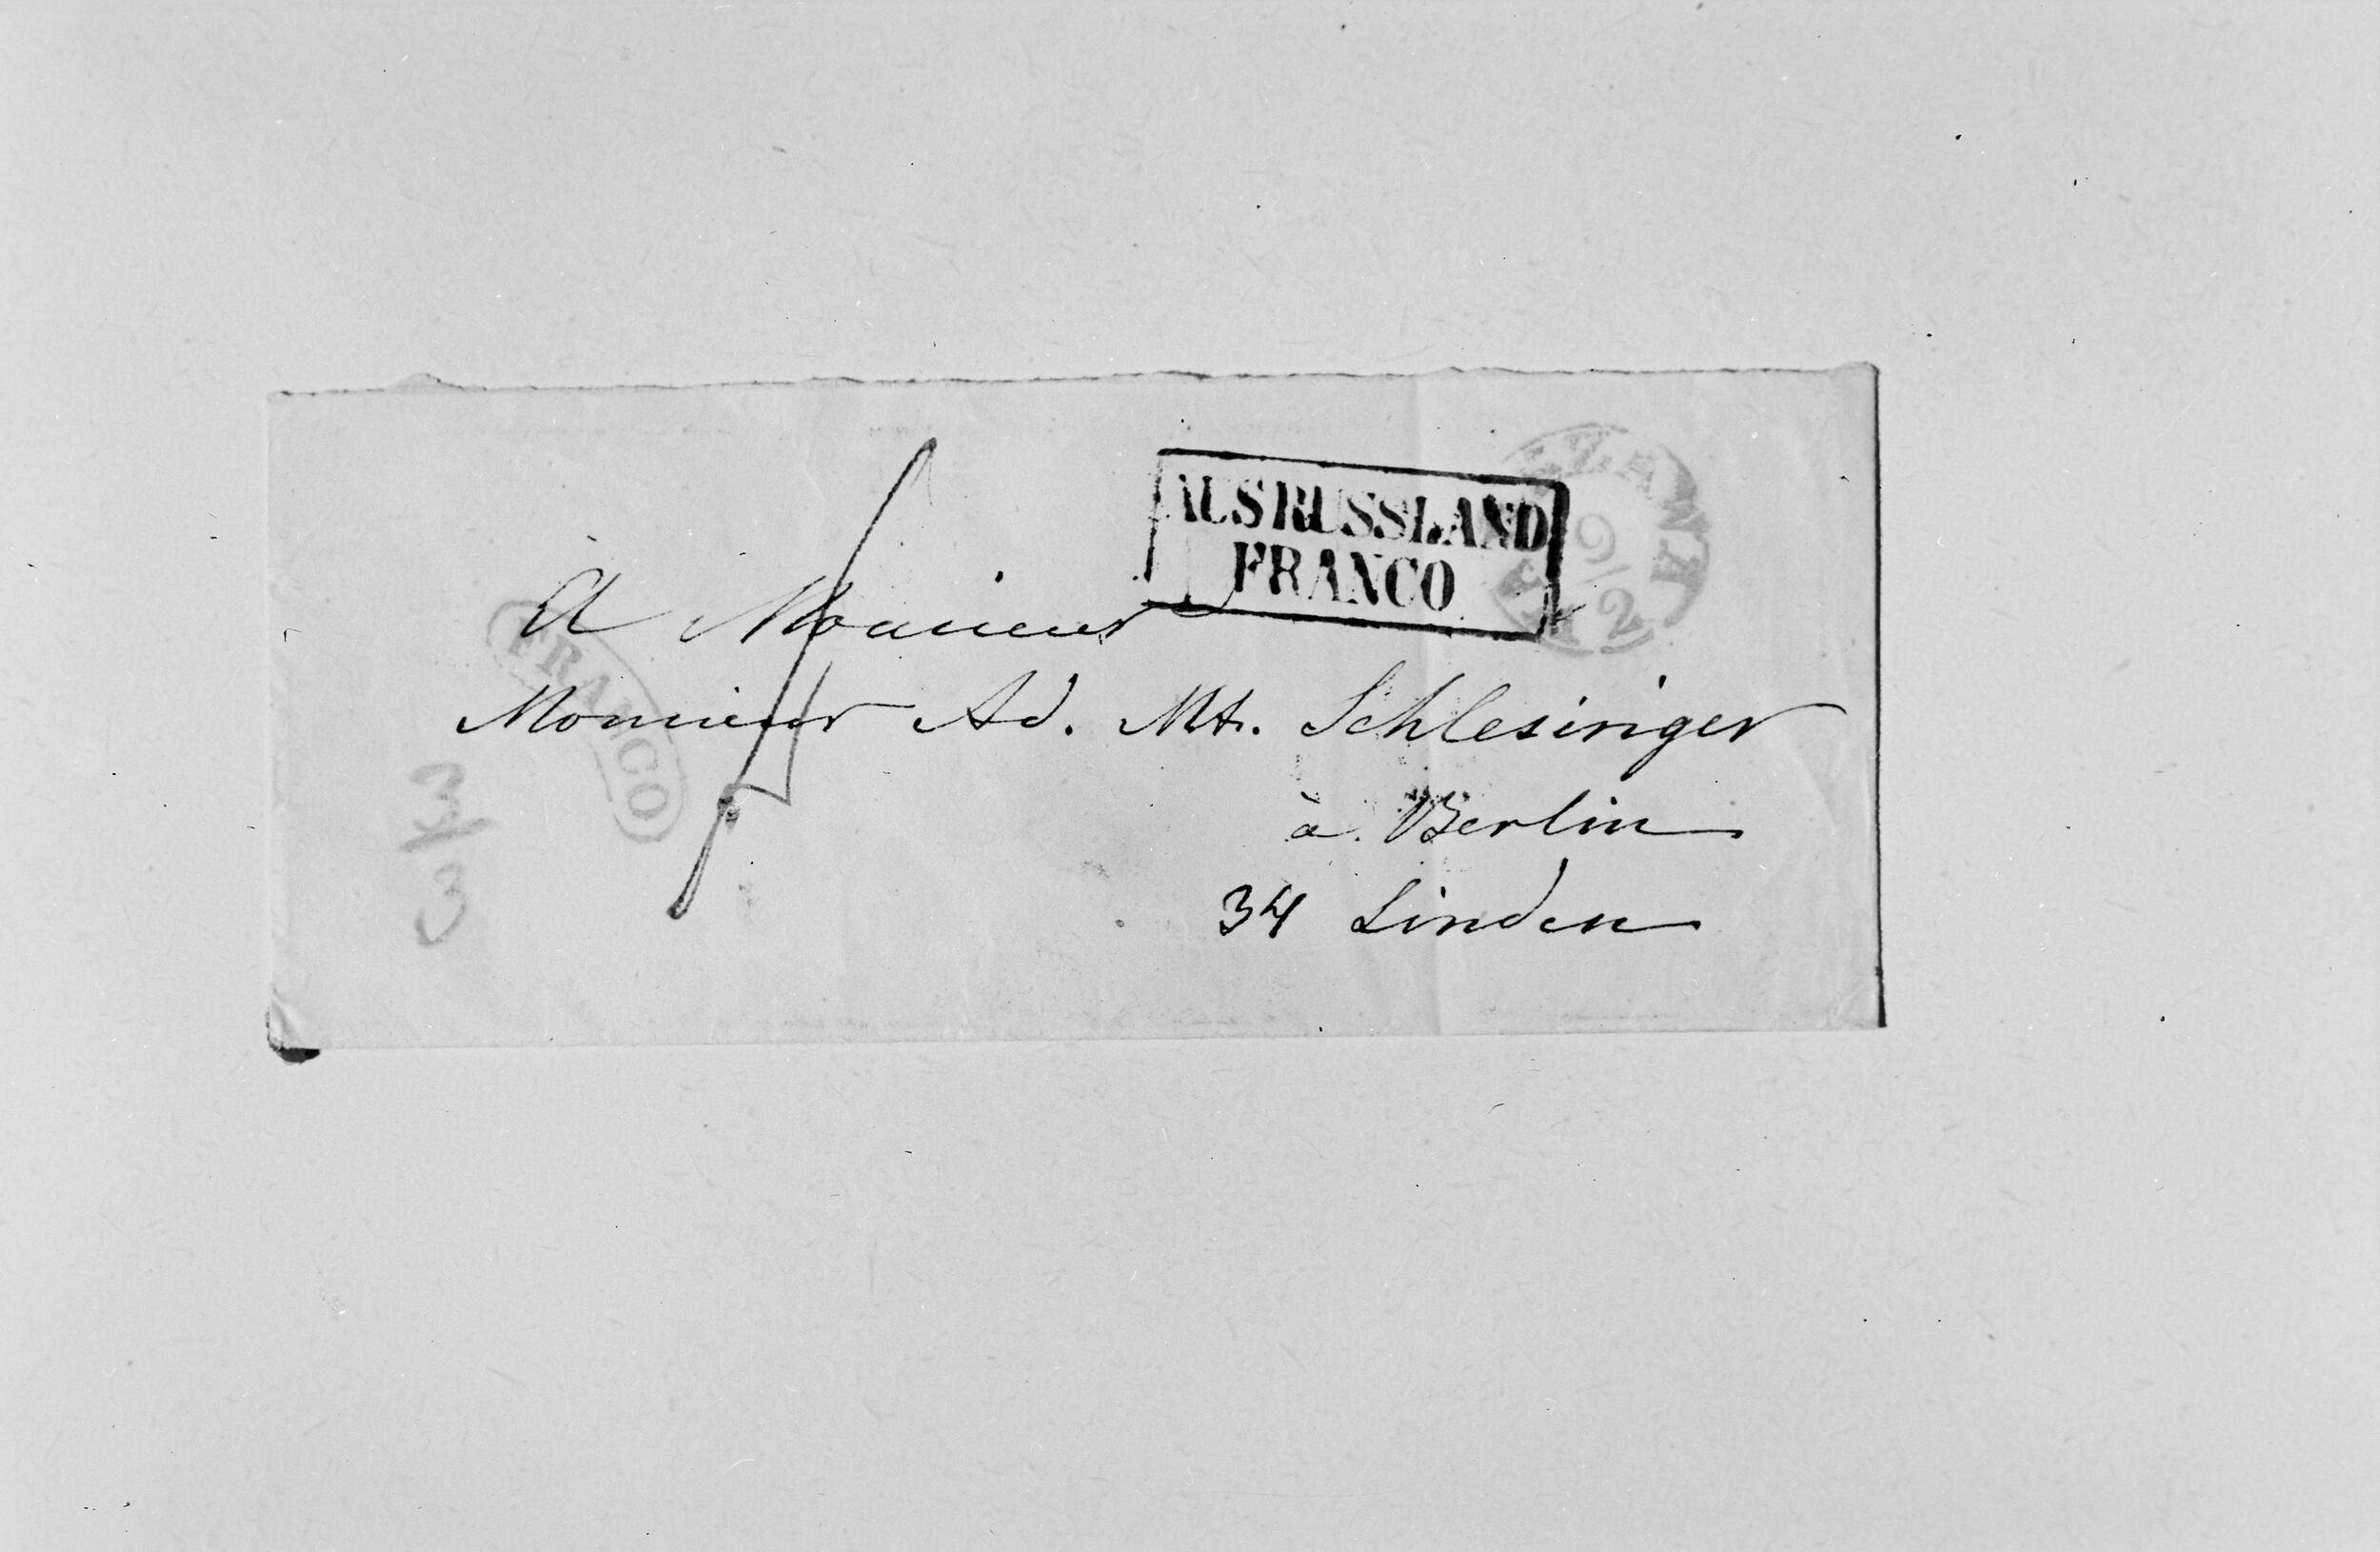 AUS RUSSLAND
FRANCO
9/2
FRANCO
A Monsieur
Monsieur Ad. Mt. Schlesinger
à Berlin
34 Linden